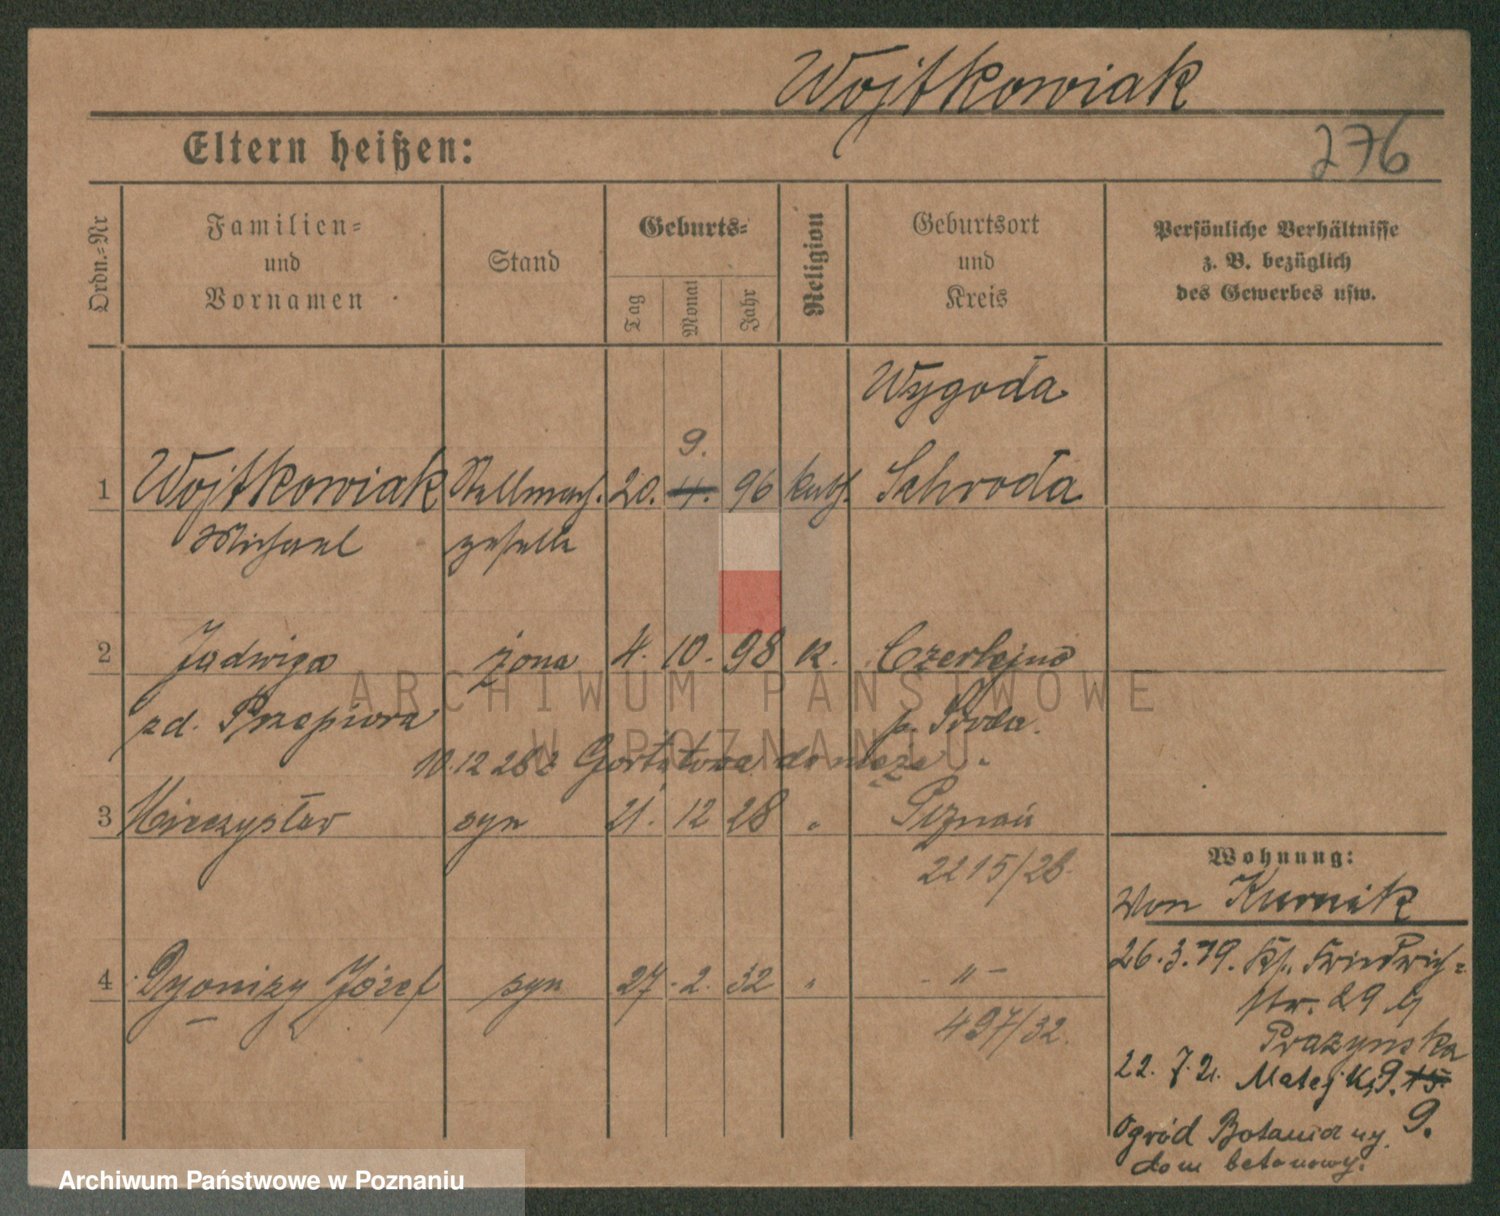 Wojtkowiak
276
Eltern heißen:
Ordn.-Nr
Familien-
und
Vornamen
Stand
Geburts-
Tag
Monat
Jahr
Religion
Geburtsort
und
Kreis
Persönliche Verhältnisse
z. B. bezüglich
des Gewerbes usw.
Wygoda
9.
1 Wojtkowiak Stellmach. 20. 4. 96 kath. Schroda
Michael geselle
2 Jadwiga żona 4. 10. 98 k. Czerlejno
zd. Przepiora p. Środa.
10.12 28 z do męża
3 Mieczysław syn 21. 12 28 " Poznań
2215/28
4 Dyonizy Józef syn 27. 2. 32 " - " -
497/32.
Wohnung:
Von Kurnik
26.3.19. Friedrich-
str. 29
Prażyńska
22. 7. 21. Matejki 9. 15.
Ogród Botaniczny 9.
dom betonowy.
ARCHIWUM PAŃSTWOWE
W POZNANIU
Archiwum Państwowe w Poznaniu